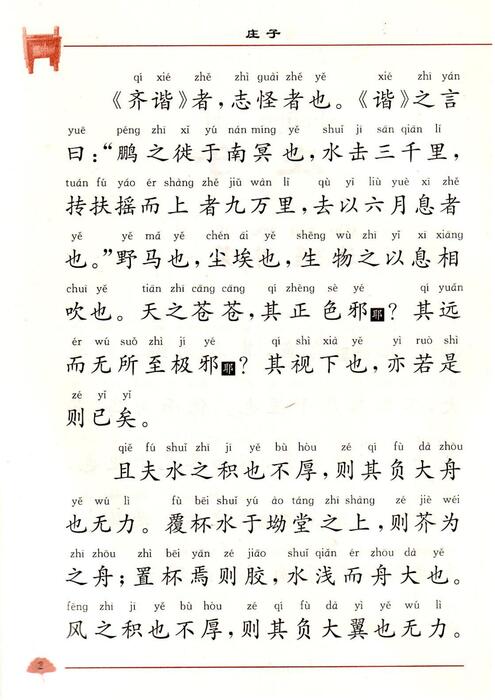 庄子
qí xié zhě zhì guài zhě yě xié zhī yán
《齐谐》者，志怪者也。《谐》之言
yuē péng zhī xǐ yú nán míng yě shuǐ jī sān qiān lǐ
曰：“鹏之徙于南冥也，水击三千里，
tuán fú yáo ér shàng zhě jiǔ wàn lǐ qù yǐ liù yuè xī zhě
抟扶摇而上者九万里，去以六月息者
yě yě mǎ yě chén āi yě shēng wù zhī yǐ xī xiāng
也。”野马也，尘埃也，生物之以息相
chuī yě tiān zhī cāng cāng qí zhèng sè yé qí yuǎn
吹也。天之苍苍，其正色邪耶？其远
ér wú suǒ zhì jí yé qí shì xià yě yì ruò shì
而无所至极邪耶？其视下也，亦若是
zé yǐ yǐ
则已矣。
qiě fú shuǐ zhī jī yě bù hòu zé qí fù dà zhōu
且夫水之积也不厚，则其负大舟
yě wú lì fù bēi shuǐ yú ào táng zhī shàng zé jiè wéi
也无力。覆杯水于坳堂之上，则芥为
zhī zhōu zhì bēi yān zé jiāo shuǐ qiǎn ér zhōu dà yě
之舟；置杯焉则胶，水浅而舟大也。
fēng zhī jī yě bù hòu zé qí fù dà yì yě wú lì
风之积也不厚，则其负大翼也无力。
2